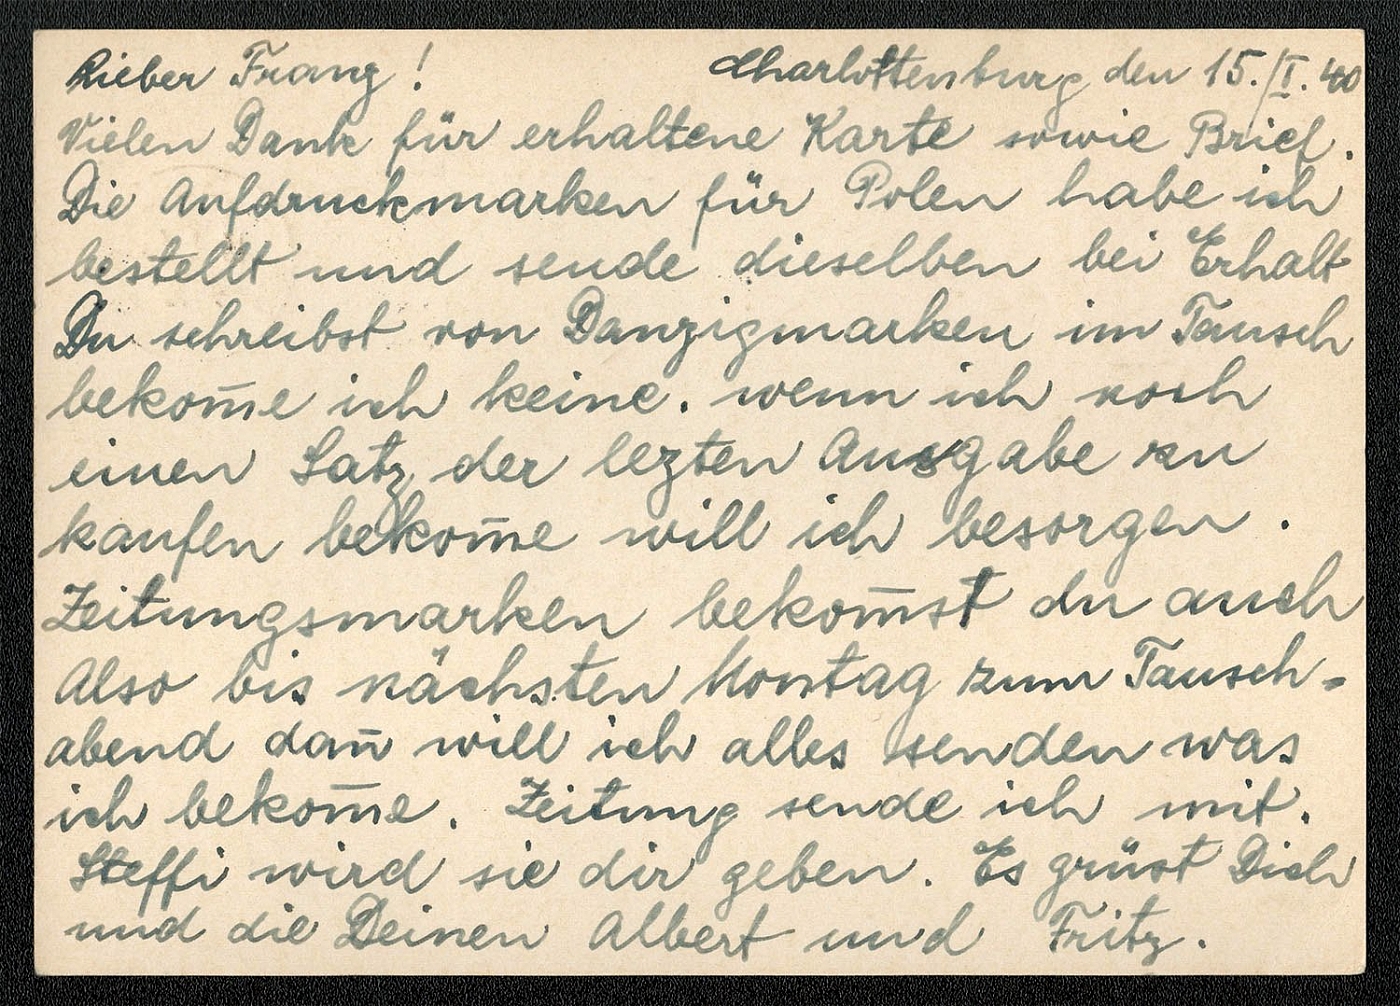 Lieber Franz! Charlottenburg den 15./I. 40
Vielen Dank für erhaltene Karte sowie Brief.
Die Aufdruckmarken für Polen habe ich
bestellt und sende dieselben bei Erhalt
Du schreibst von Danzigmarken im Tausch
bekom̅e ich keine. wenn ich noch
einen Satz der lezten Ausgabe zu
kaufen bekom̅e will ich besorgen.
Zeitungsmarken bekom̅st du auch
Also bis nächsten Montag zum Tausch-
abend dan̅ will ich alles senden was
ich bekom̅e. Zeitung sende ich mit.
Steffi wird sie dir geben. Es grüst Dich
und die Deinen Albert und Fritz.